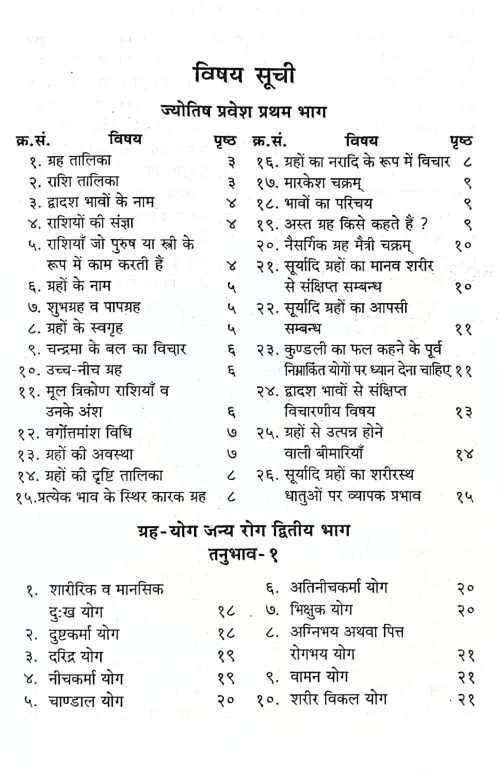 विषय सूची
ज्योतिष प्रवेश प्रथम भाग
क्र.सं. विषय पृष्ठ
१. ग्रह तालिका ३
२. राशि तालिका ३
३. द्वादश भावों के नाम ४
४. राशियों की संज्ञा ४
५. राशियाँ जो पुरुष या स्त्री के
रूप में काम करती हैं ४
६. ग्रहों के नाम ५
७. शुभग्रह व पापग्रह ५
८. ग्रहों के स्वगृह ५
९. चन्द्रमा के बल का विचार ६
१०. उच्च-नीच ग्रह ६
११. मूल त्रिकोण राशियाँ व
उनके अंश ६
१२. वर्गोत्तमांश विधि ७
१३. ग्रहों की अवस्था ७
१४. ग्रहों की दृष्टि तालिका ८
१५.प्रत्येक भाव के स्थिर कारक ग्रह ८
क्र.सं. विषय पृष्ठ
१६. ग्रहों का नरादि के रूप में विचार ८
१७. मारकेश चक्रम् ९
१८. भावों का परिचय ९
१९. अस्त ग्रह किसे कहते हैं ? ९
२०. नैसर्गिक ग्रह मैत्री चक्रम् १०
२१. सूर्यादि ग्रहों का मानव शरीर
से संक्षिप्त सम्बन्ध १०
२२. सूर्यादि ग्रहों का आपसी
सम्बन्ध ११
२३. कुण्डली का फल कहने के पूर्व
निम्नांकित योगों पर ध्यान देना चाहिए ११
२४. द्वादश भावों से संक्षिप्त
विचारणीय विषय १३
२५. ग्रहों से उत्पन्न होने
वाली बीमारियाँ १४
२६. सूर्यादि ग्रहों का शरीरस्थ
धातुओं पर व्यापक प्रभाव १५
ग्रह-योग जन्य रोग द्वितीय भाग
तनुभाव-१
१. शारीरिक व मानसिक
दुःख योग १८
२. दुष्टकर्मा योग १८
३. दरिद्र योग १९
४. नीचकर्मा योग १९
५. चाण्डाल योग २०
६. अतिनीचकर्मा योग २०
७. भिक्षुक योग २०
८. अग्निभय अथवा पित्त
रोगभय योग २१
९. वामन योग २१
१०. शरीर विकल योग २१